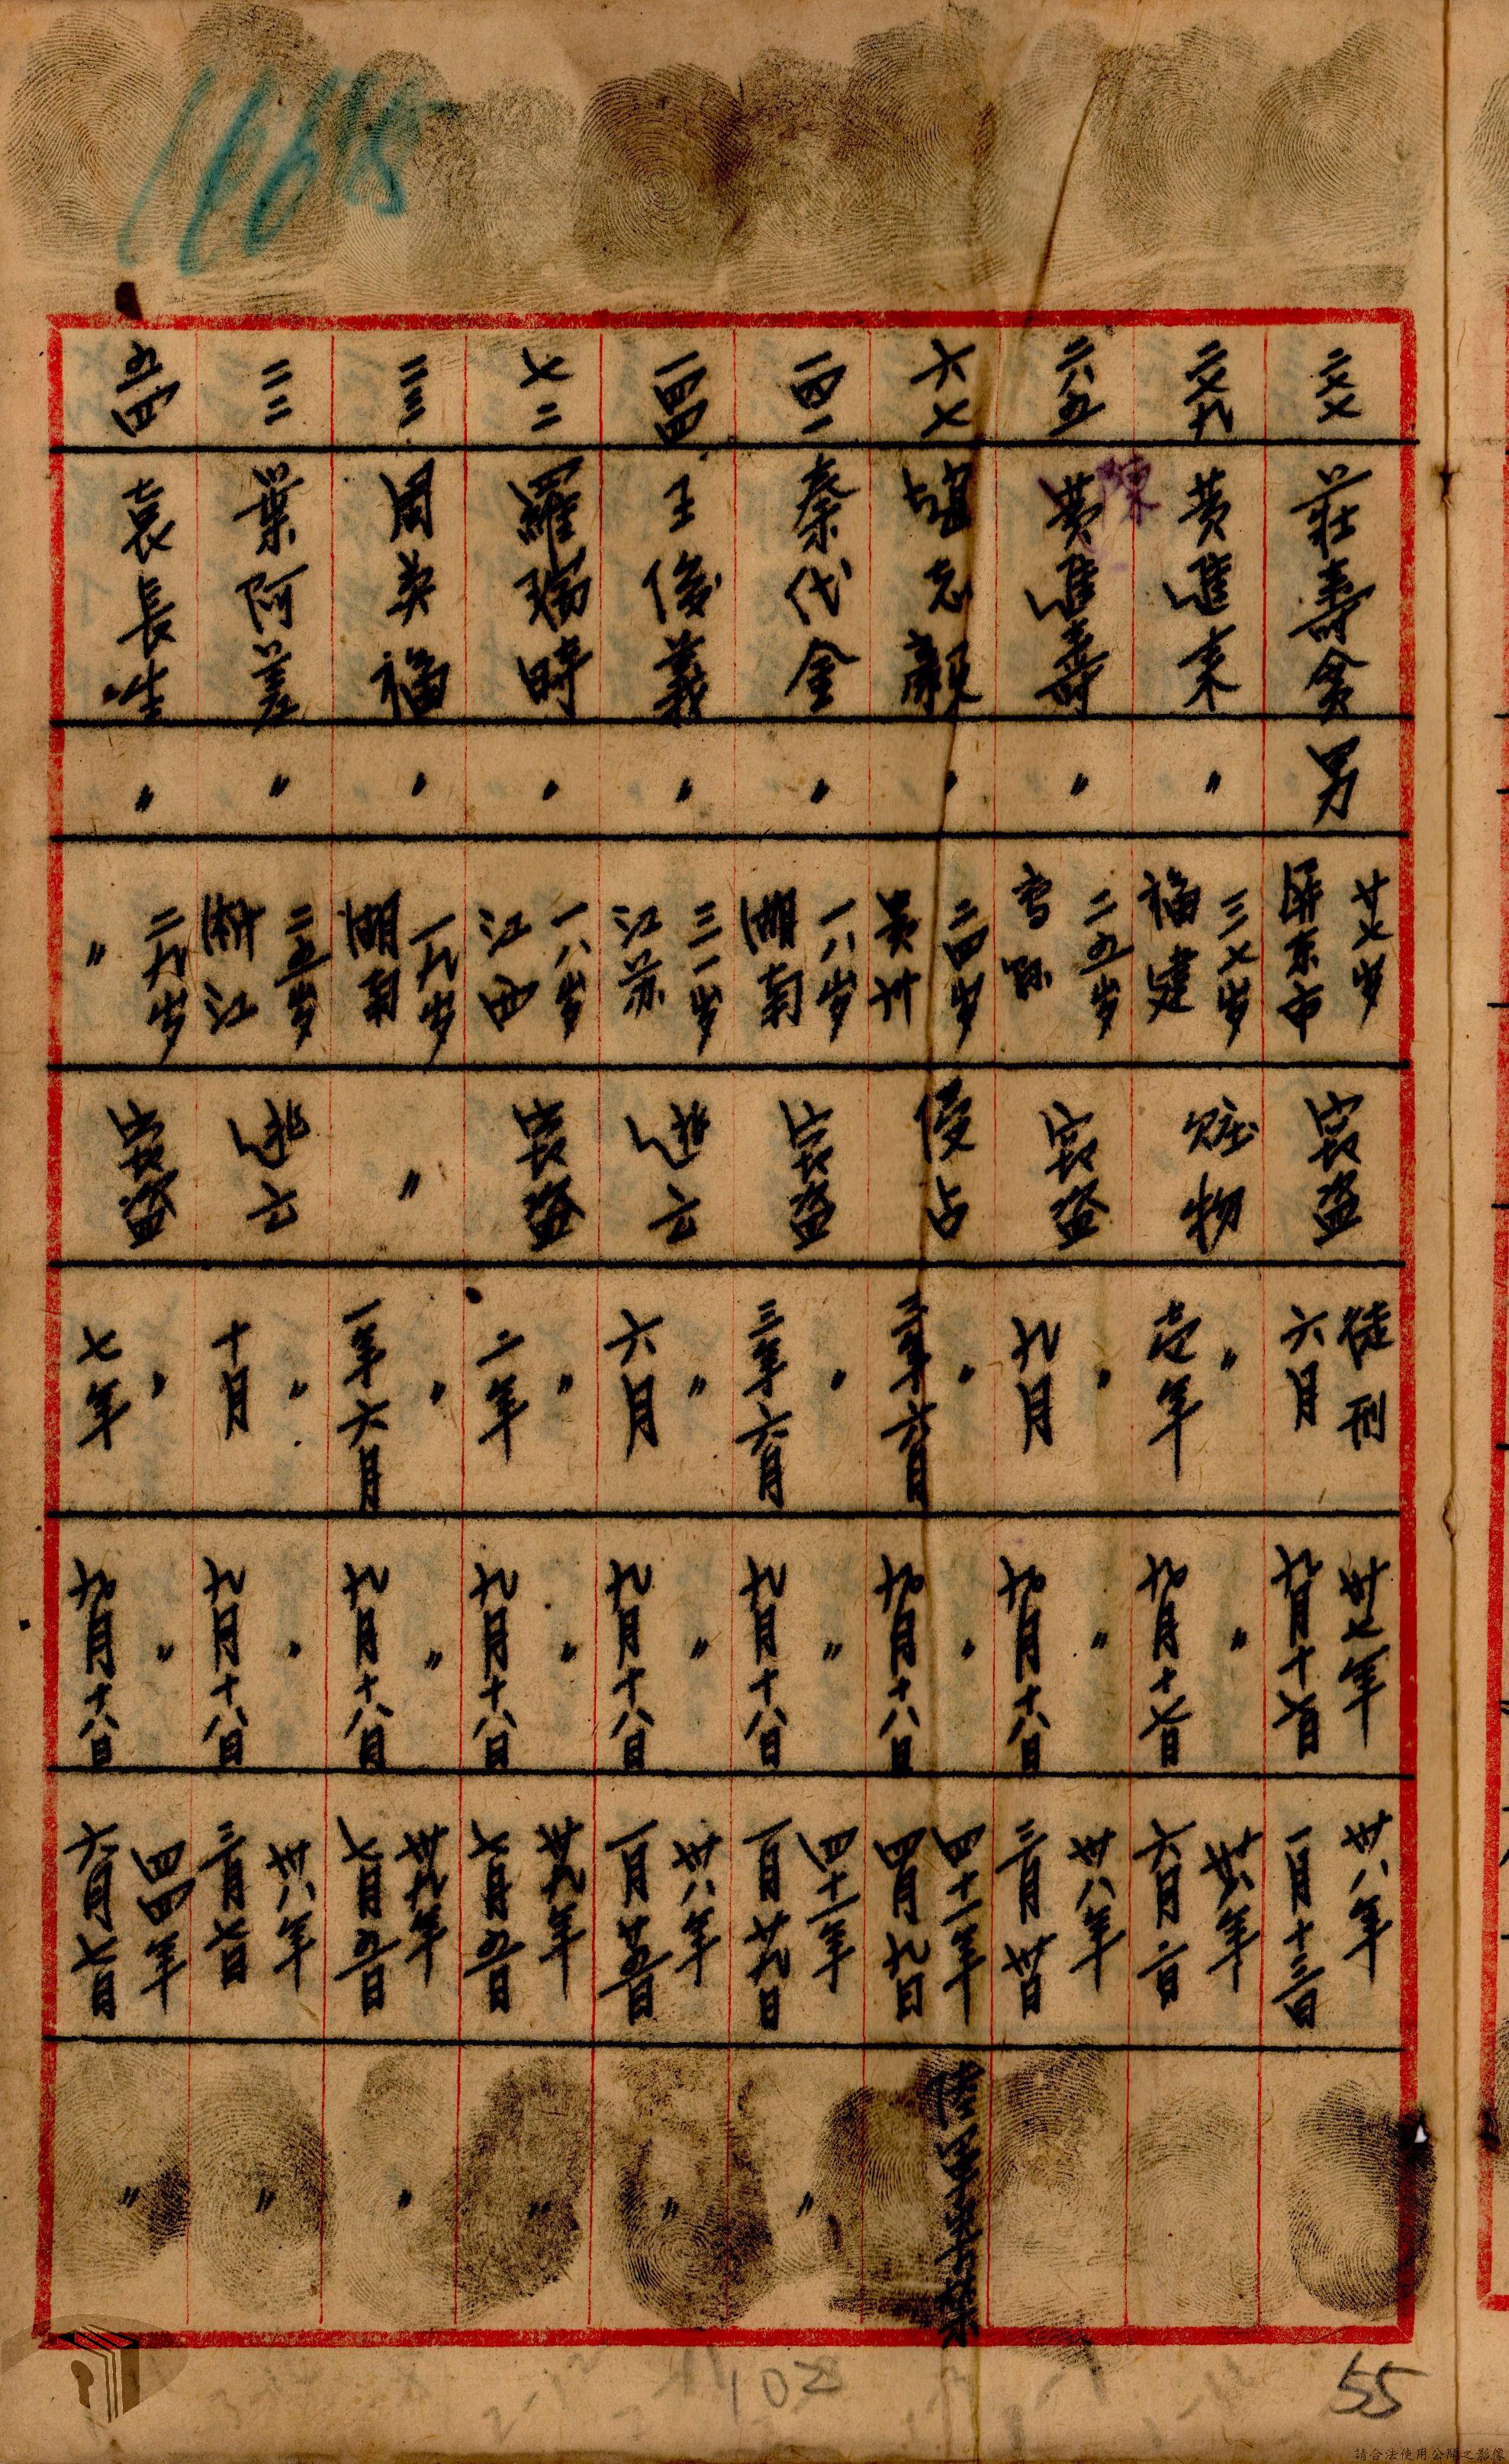 二六七
莊壽貪
男
廿七岁
屏東市
窃盗
徒刑
六月
卅七年
九月十七日
卅八年
一月十三日
二六九
黄進来
〃
三七岁
福建
贓物
〃
壱年
〃
九月十七日
卅八年
六月六日
二八五
陳
黄進壽
〃
二五岁
窃盗
〃
九月
〃
九月十八日
卅八年
三月卅日
六七
志顯
〃
二四岁
侵占
〃
三年六月
〃
九月十八日
四十一年
四月九日
一四一
秦代金
〃
一八岁
湖南
窃盗
〃
三年六月
〃
九月十八日
四十一年
一月廿九日
一四四
王俊義
〃
三一岁
江苏
逃亡
〃
六月
〃
九月十八日
卅八年
一月廿五日
〃
七二
羅瑞時
〃
一八岁
江西
窃盗
〃
二年
〃
九月十八日
卅九年
七月五日
〃
二三三
周英福
〃
一九岁
湖南
〃
〃
一年六月
〃
九月十八日
卅九年
七月五日
〃
二二二
葉阿差
〃
二五岁
浙江
逃亡
〃
十月
〃
九月十八日
卅八年
三月七日
〃
五四
袁長生
〃
二九岁
〃
窃盗
〃
七年
〃
九月十八日
四四年
六月七日
〃
102
55
請合法使用公開之影像